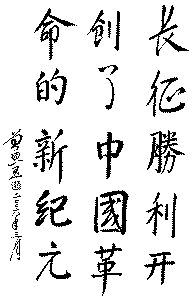 長征勝利开
創了中國革
命的新紀元